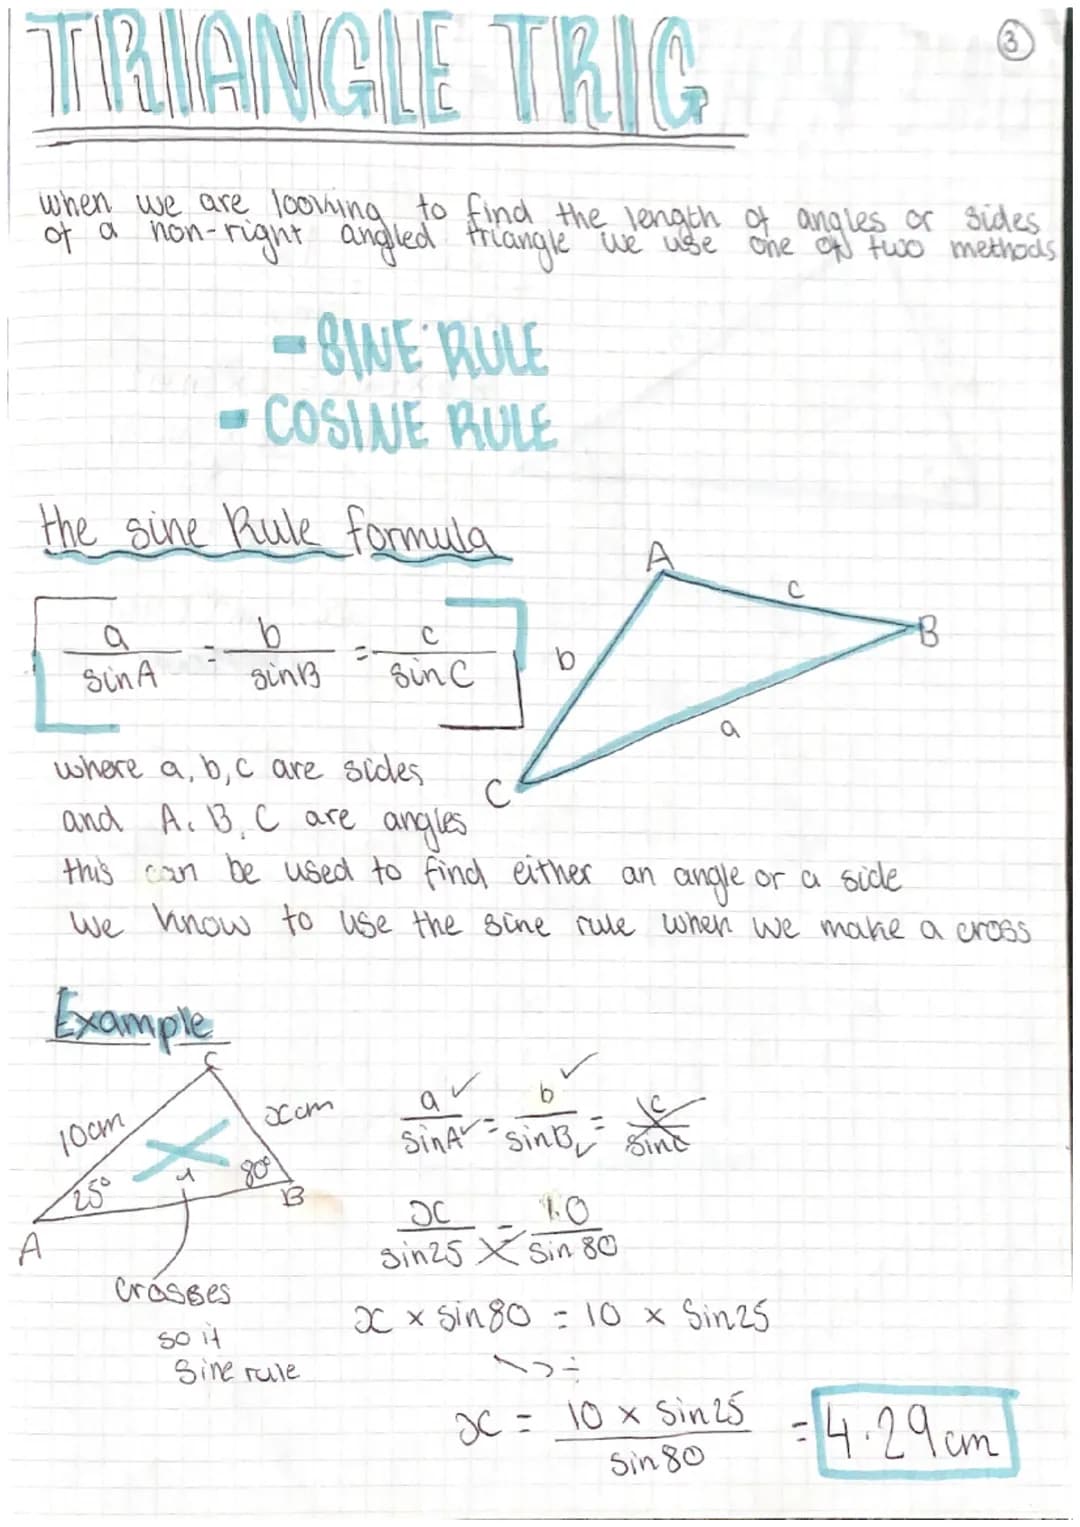 TRIANGLE TRIG
3
when we are looking to find the length of angles or sides
of a non-right angled triangle we use one of two methods
- SINE RULE
- COSINE RULE
the sine Rule formula
a/sinA = b/sinB = c/sinC
A
c
B
b
a
C
where a, b, c are sides
and A, B, C are angles
this can be used to find either an angle or a side
we know to use the sine rule when we make a cross
Example
C
10cm
xcm
25°
80°
A
B
crosses
so it
Sine rule
a/sinA = b/sinB = c/sinC
x/sin25 = 10/sin80
x × sin80 = 10 × Sin25
÷
x = 10 × Sin25/sin80 = 4.29cm